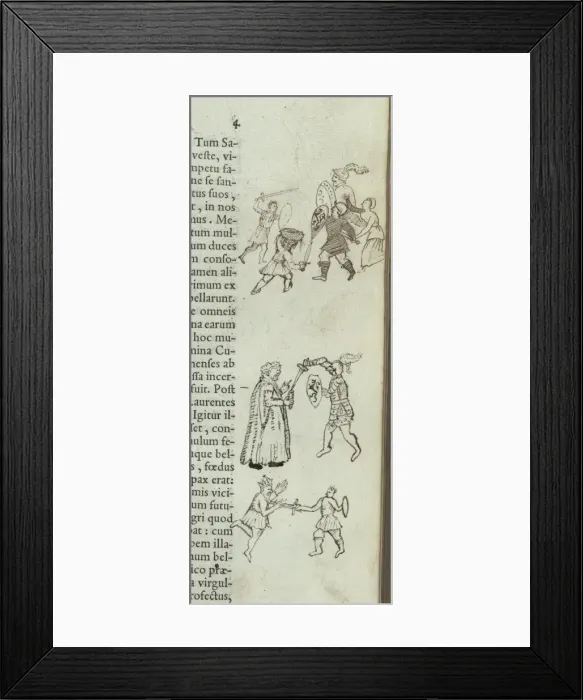 4
Tum Sa-
veste, vi-
mpetu fa-
ne se san-
tus suos,
t, in nos
nus. Me-
tum mul-
um duces
m conso-
amen ali-
rimum ex
pellarunt.
e omneis
na earum
hoc mu-
nina Cu-
nenses ab
ssa incer-
fuit. Post
Laurentes
Igitur il-
set, con-
ulum fe-
que bel-
s, fœdus
pax erat:
mis vici-
um futu-
gri quod
at: cum
em illa-
num bel-
ico præ-
a virgul-
rofectus,